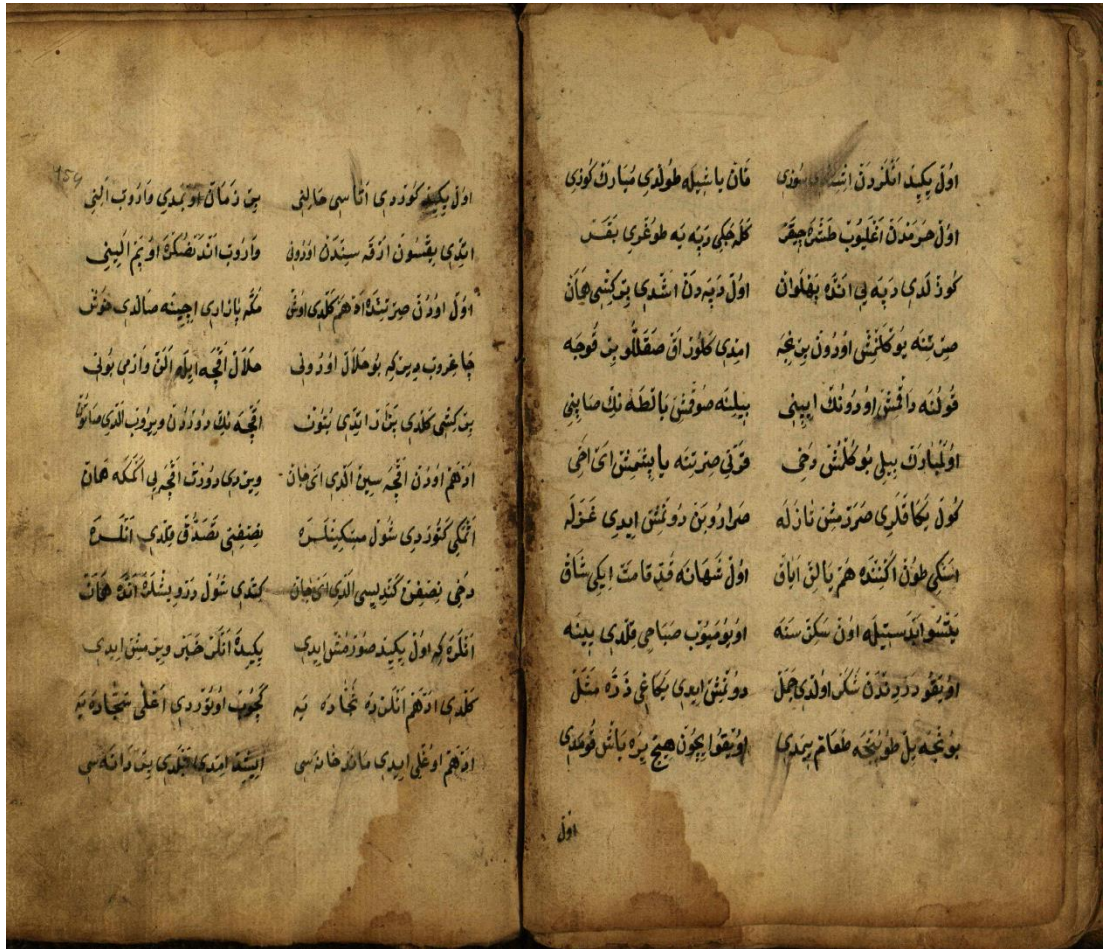 اول يكيد انلردن اشيدى سوزى قان ياشيله طولدى مبارك كوزى
اول حرمدن اغليوب طشره چقر كله جكى دپه يه طوغرى بقر
كوزلدى دپه يى انده پهلوان اول دپه دن اشدى بر كشى همان
صرتنه يوكلنمش اودون بر غجه ايمدى كلور اق صقاللو بر قوجه
قولنه داقمش اودونك ايپنى بيلنه صوقمش بالطه نك صاپنى
اول مبارك بيلى بوكلمش دخى قرنى صرتنه ياپشمش اى اخى
كول يكاقلرى صررمش نازله صراروبن دونمش ايدى غزله
اسكى طون اكننده هم يالن اياق اول شهانه قد قامت ايكى شاق
يتسو ابدستيله اون سكز سنه اويوميوب صباحى قلدى يينه
اويقو دردندن شكر اولدى جمل دونمش ايدى بكاغى ذره مثل
بونجه ييل طوينجه طعام ييمدى اويقو ايچون هيچ يره باش قومدى
اول
اول يكيد كوردى اتاسى حالنى بر زمان اويمدى واروب النى
ايتدى چقسون ارقه سندن اودونى واروب اندنصكره اوپيم الينى
اول اودن صرتنده ادهم كلدى اوش مكه بازارى ايچينه صالدى خوش
چاغروب دير كه بو حلال اودونى حلال اقچه ايله الن وارمى بونى
بر كشى كلدى بازار ايتدى بتون اقچه نك دوردن ويروب الدى صاتون
ادهم اودن اقچه سين الدى اى جان ويردى دورت اقچه يى اتمكه همان
اتمكى كتوردى شول مسكينلره نصفنى تصدق قلدى انلره
دخى نصفن كنديسى الدى اى جان كتدى شول درويشلره انده همان
انلره كه اول يكيد صورمش ايدى يكيده انلر خبر ويرمش ايدى
كلدى ادهم انلرده سجاده يه كچوب اوتوردى اعلى سجاده يه
ادهم اوغلى ايدى